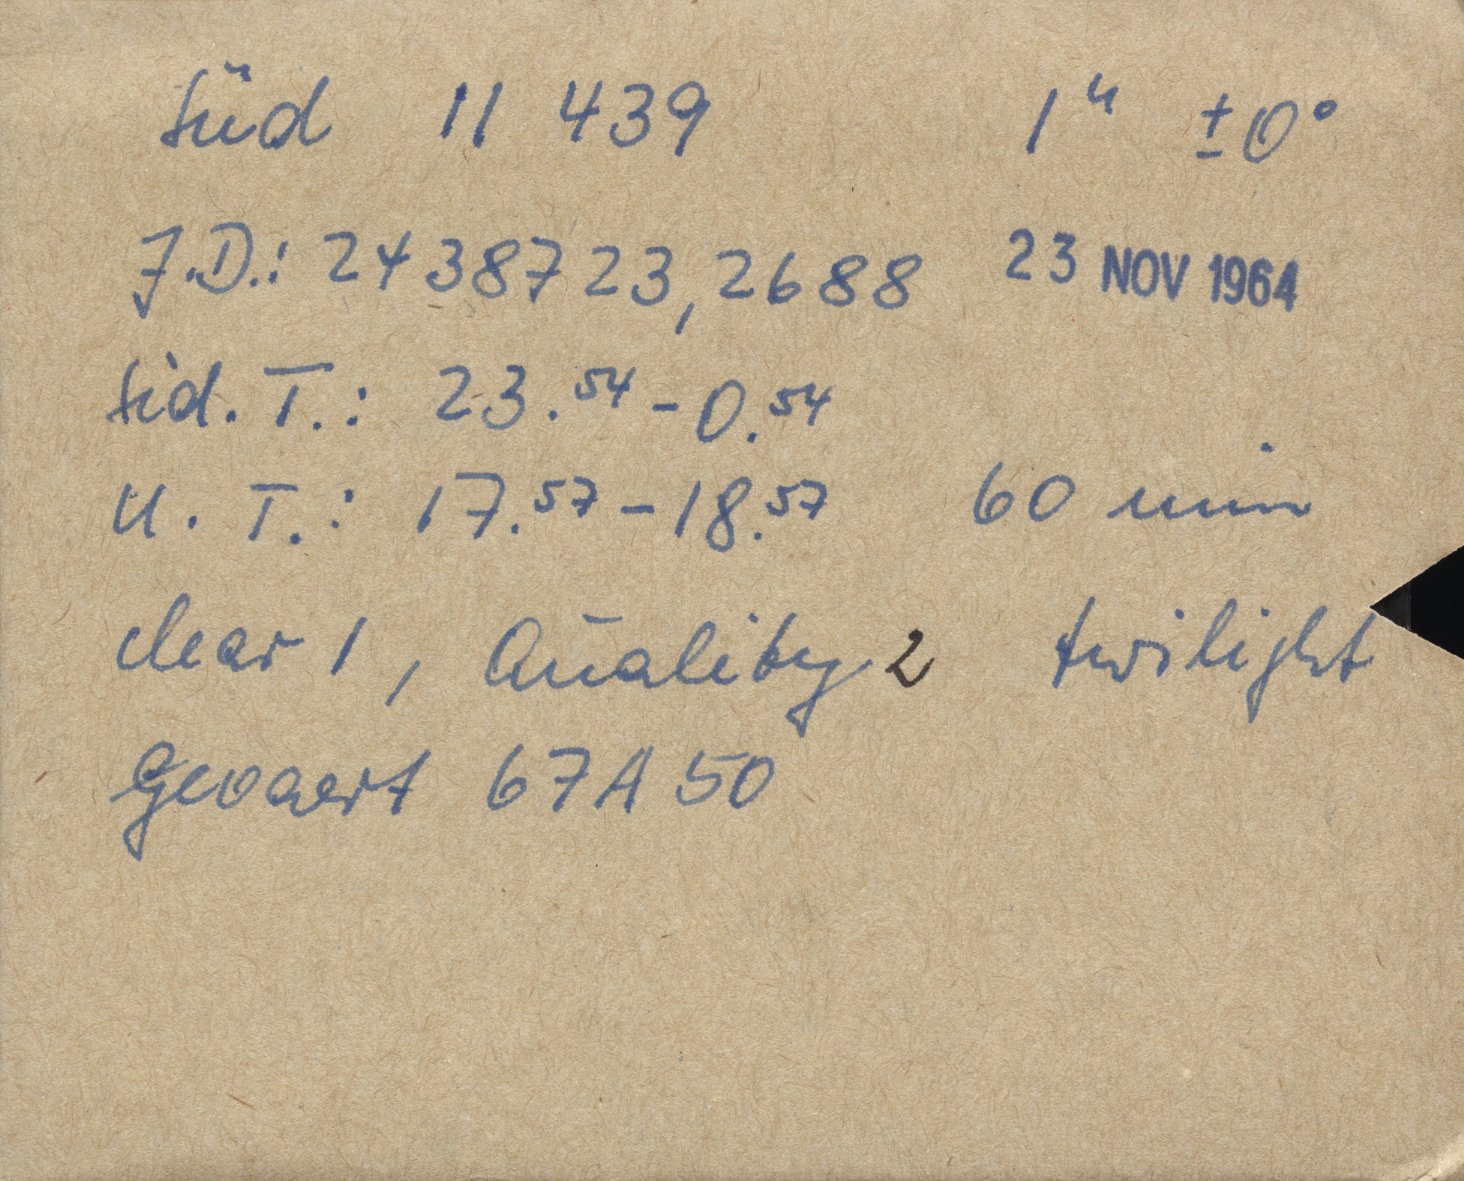 Süd 11 439 1ʰ ±0°
J.D.: 2438723,2688 23 NOV 1964
Sid. T.: 23.⁵⁴ - 0.⁵⁴
U. T.: 17.⁵⁷ - 18.⁵⁷ 60 min
clear 1, Quality 2 twilight
Gevaert 67A50